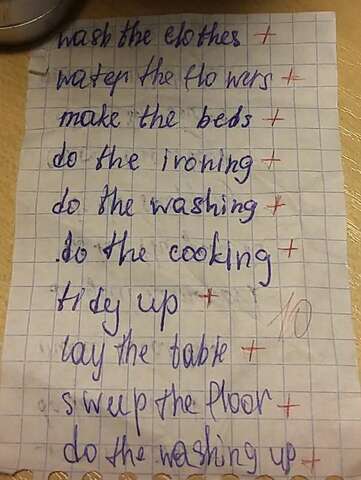 wash the clothes +
water the flowers +
make the beds +
do the ironing +
do the washing +
do the cooking +
tidy up +
10
lay the table +
sweep the floor +
do the washing up +